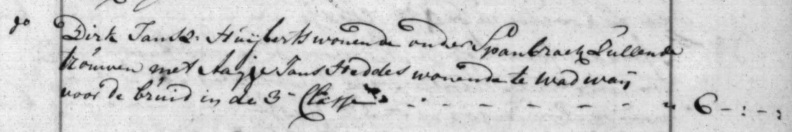 do Dirk Jansz: Huijberts wonende onder Spanbroek Zullende
trouwen met Aagje Jans Heddes wonende te wadwaij
voor de bruid in de 3e Classe - - - - - - - " 6 -:-: